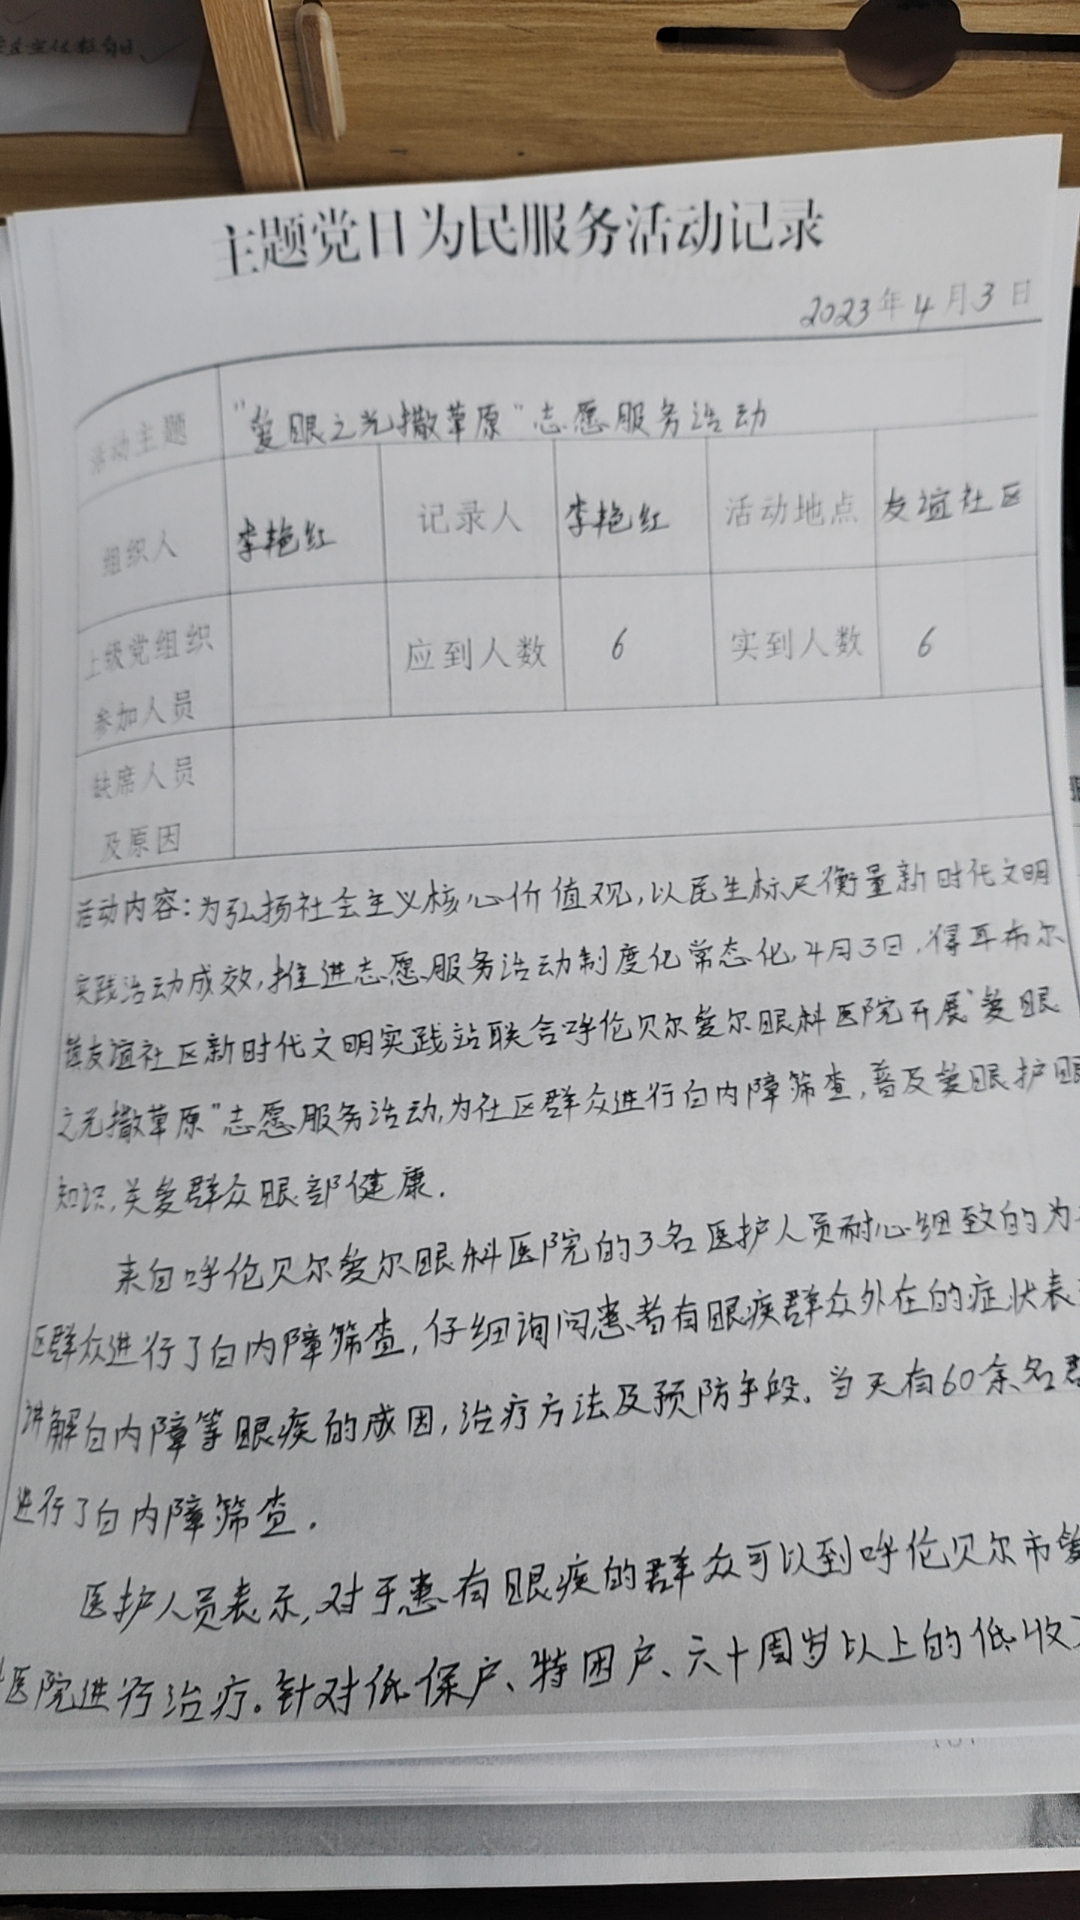 主题党日为民服务活动记录
2023年4月3日
活动主题 "爱眼之光撒草原"志愿服务活动
组织人 李艳红 记录人 李艳红 活动地点 友谊社区
上级党组织参加人员 应到人数 6 实到人数 6
缺席人员及原因
活动内容:为弘扬社会主义核心价值观,以民生标尺衡量新时代文明
实践活动成效,推进志愿服务活动制度化常态化,4月3日,得耳布尔
镇友谊社区新时代文明实践站联合呼伦贝尔爱尔眼科医院开展"爱眼
之光撒草原"志愿服务活动,为社区群众进行白内障筛查,普及爱眼护眼
知识,关爱群众眼部健康.
来自呼伦贝尔爱尔眼科医院的3名医护人员耐心细致的为
区群众进行了白内障筛查,仔细询问患者有眼疾群众外在的症状表
讲解白内障等眼疾的成因,治疗方法及预防手段。当天有60余名群
进行了白内障筛查.
医护人员表示,对于患有眼疾的群众可以到呼伦贝尔市爱
医院进行治疗。针对低保户、特困户、六十周岁以上的低收